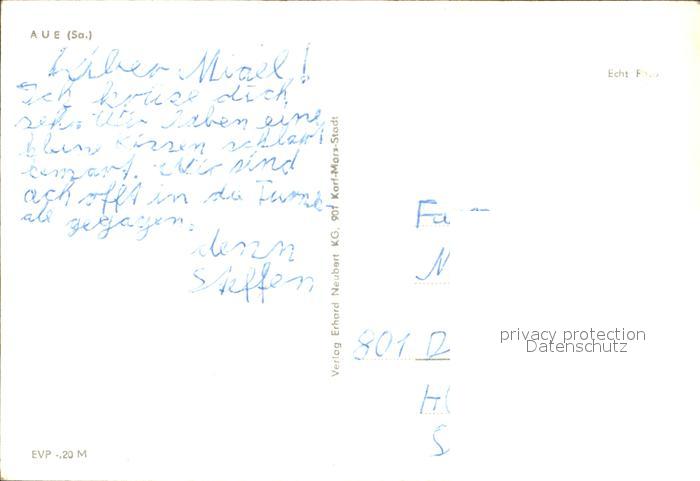 AUE (Sa.)
Lieber Micael!
Ich
dich
seh. Wir haben eine
Kissen schlart
gemart. Wir sind
och offt in die Turne-
ale gegagen.
denn
Steffen
Verlag Erhard Neubert KG, 901 Karl-Marx-Stadt
Echt Foto
Fa
M
801 D
H
S
privacy protection
Datenschutz
EVP -,20 M